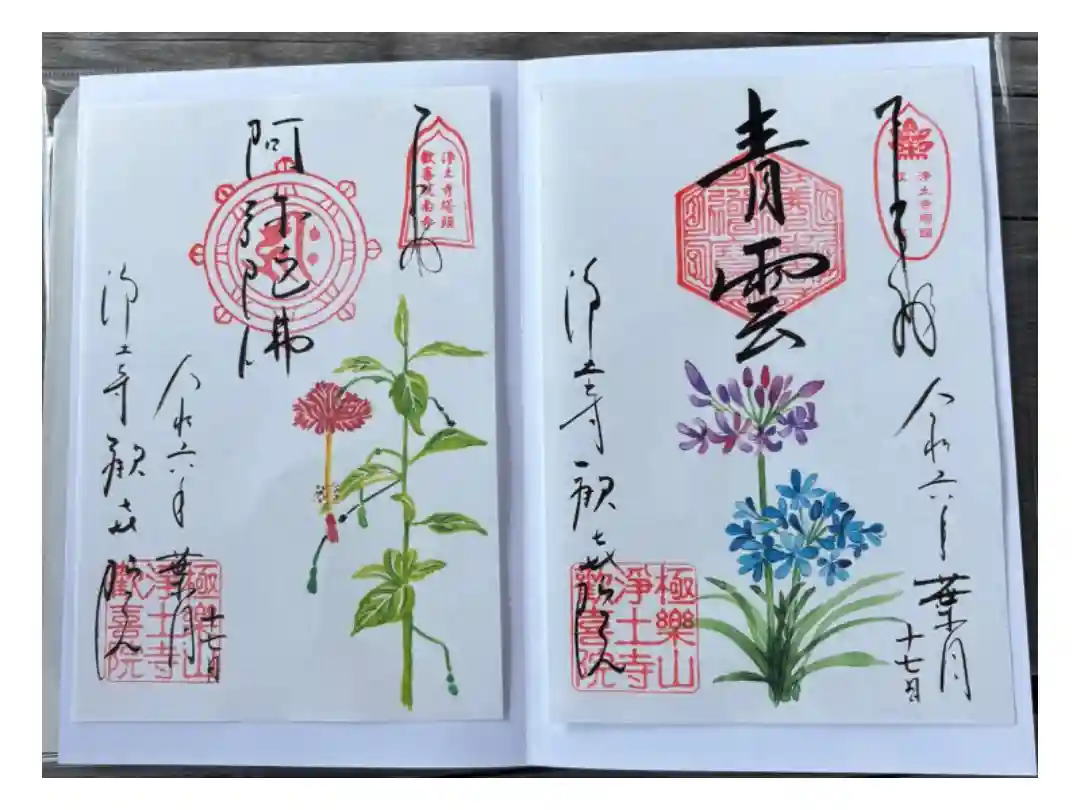 奉拝
浄土寺塔頭
青雲
令和六年 葉月
十七日
浄土寺 歓喜院
極樂山
淨土寺
歡喜院
奉拝
浄土寺塔頭
阿弥陀佛
令和六年 葉月
十七日
浄土寺 歓喜院
極樂山
淨土寺
歡喜院